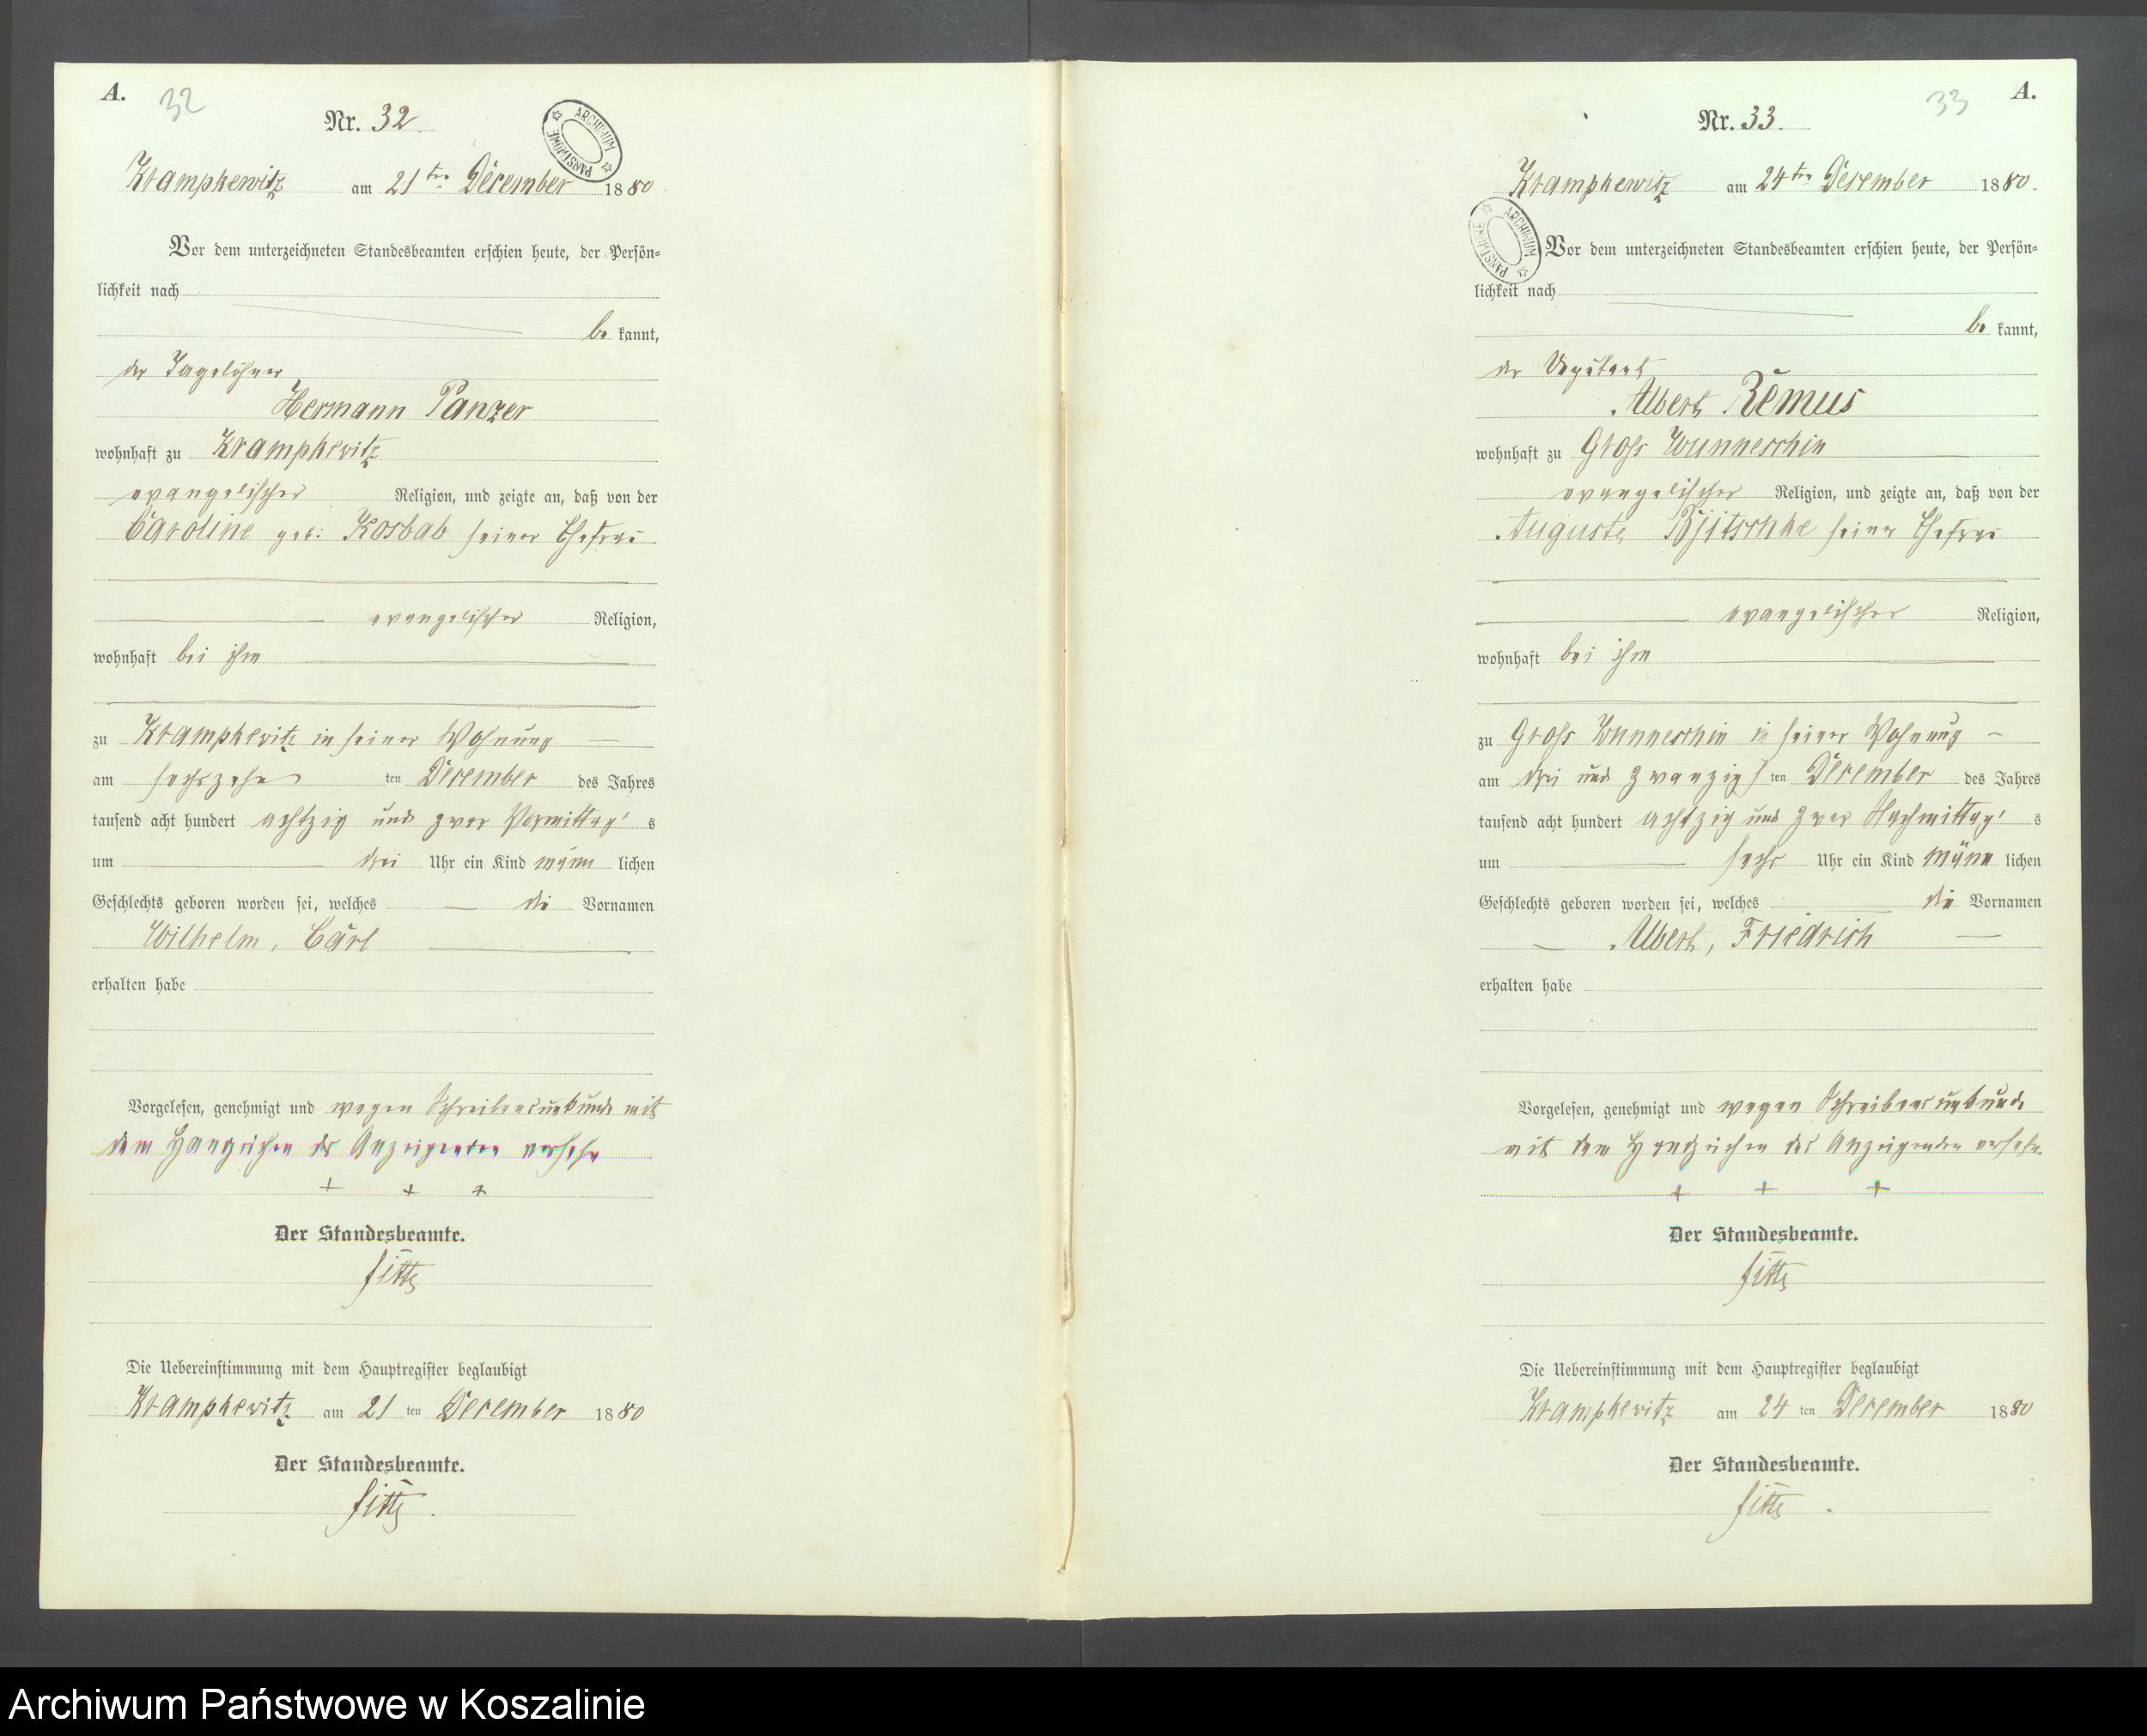 A.
32
Nr. 32.
ARCHIWUM PAŃSTWOWE
Krampkewitz am 21ten December 1880
Vor dem unterzeichneten Standesbeamten erschien heute, der Persön=
lichkeit nach
be kannt,
der Tagelöhner
Hermann Panzer
wohnhaft zu Krampkewitz
evangelischer Religion, und zeigte an, daß von der
Caroline geb: Kosbab seiner Ehefrau
evangelischer Religion,
wohnhaft bei ihm
zu Krampkewitz in seiner Wohnung
am sechszehn ten December des Jahres
tausend acht hundert achtzig und zwar Vormittag s
um drei Uhr ein Kind männ lichen
Geschlechts geboren worden sei, welches die Vornamen
Wilhelm, Carl
erhalten habe
Vorgelesen, genehmigt und wegen Schreibensunkunde mit
dem Handzeichen des Anzeigenden versehn
+ + +
Der Standesbeamte.
Die Uebereinstimmung mit dem Hauptregister beglaubigt
Krampkewitz am 21 ten December 1880
Der Standesbeamte.
A.
33
Nr. 33.
Krampkewitz am 24ten December 1880.
ARCHIWUM PAŃSTWOWE
Vor dem unterzeichneten Standesbeamten erschien heute, der Persön=
lichkeit nach
be kannt,
der Deputant
Albert Remus
wohnhaft zu Groß Wunneschin
evangelischer Religion, und zeigte an, daß von der
Auguste seiner Ehefrau
evangelischer Religion,
wohnhaft bei ihm
zu Groß Wunneschin in seiner Wohnung
am drei und zwanzigs ten December des Jahres
tausend acht hundert achtzig und zwar Nachmittag s
um sechs Uhr ein Kind männ lichen
Geschlechts geboren worden sei, welches die Vornamen
Albert, Friedrich
erhalten habe
Vorgelesen, genehmigt und wegen Schreibensunkunde
mit dem Handzeichen des Anzeigenden versehn.
+ + +
Der Standesbeamte.
Die Uebereinstimmung mit dem Hauptregister beglaubigt
Krampkewitz am 24 ten December 1880
Der Standesbeamte.
Archiwum Państwowe w Koszalinie